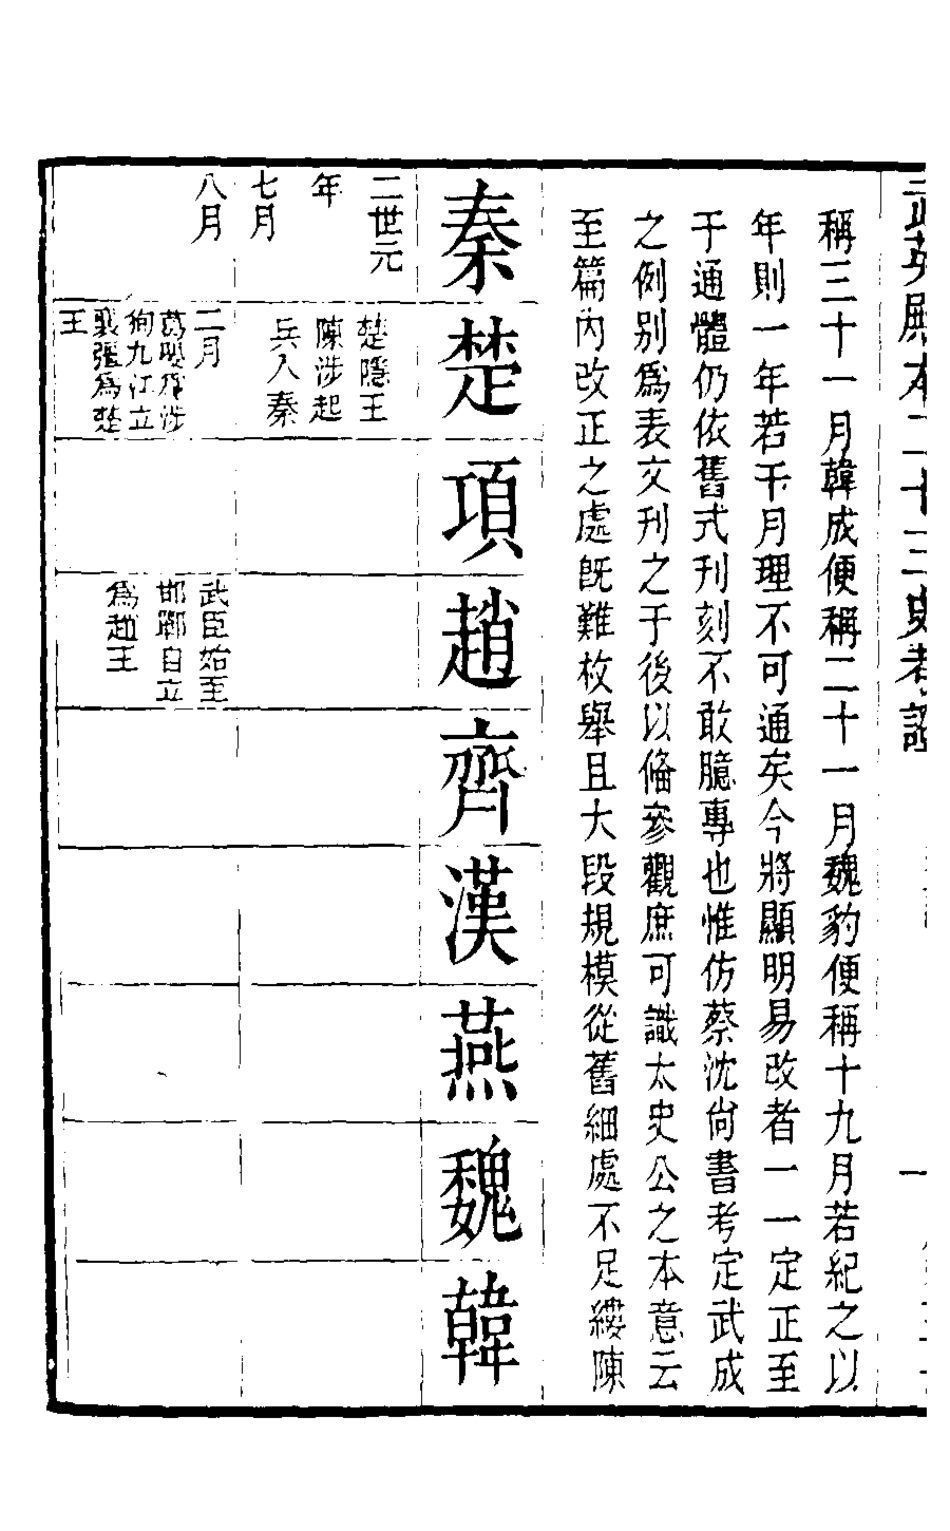 武英殿本二十三史考證
稱三十一月韓成便稱二十一月魏豹便稱十九月若紀之以
年則一年若干月理不可通矣今將顯明易改者一一定正至
于通體仍依舊式刊刻不敢臆專也惟仿蔡沈尙書考定武成
之例别爲表文刊之于後以俻參觀庶可識太史公之本意云
至篇內改正之處旣難枚舉且大段規模從舊細處不足縷陳
秦
楚
項
趙
齊
漢
燕
魏
韓
二世元
年
七月
楚隱王
陳涉起
兵入秦
八月
二月
葛嬰爲涉
徇九江立
襄彊爲楚
王
武臣始至
邯鄲自立
爲趙王